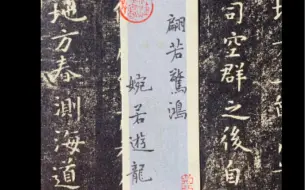 司空群之後自
翩若驚鴻
婉若遊龍
地方春測海道